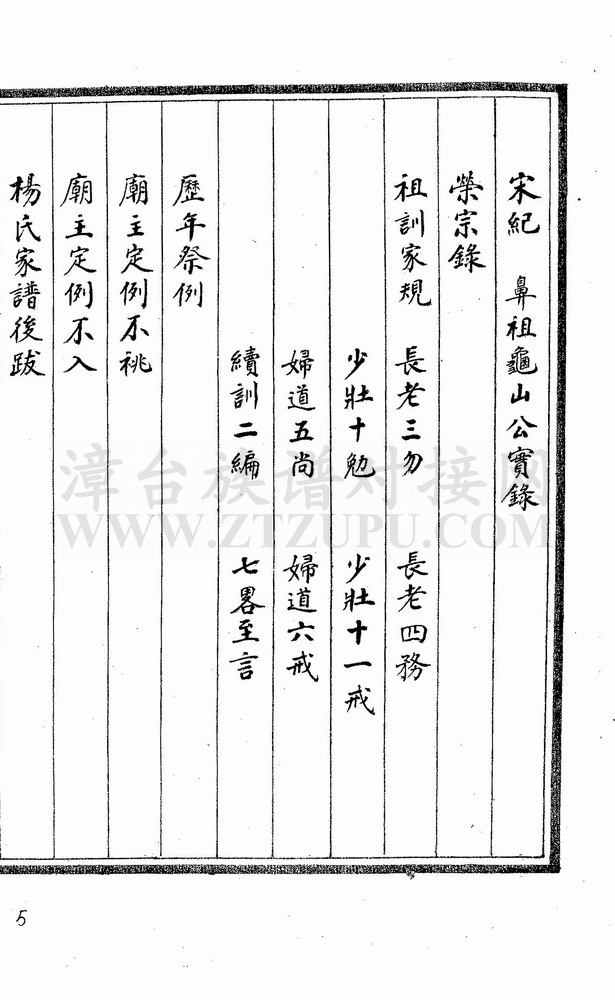 宋紀 鼻祖龜山公實錄
榮宗錄
祖訓家規 長老三勿 長老四務
少壯十勉 少壯十一戒
婦道五尚 婦道六戒
續訓二編 七畧至言
歷年祭例
廟主定例不祧
廟主定例不入
楊氏家譜後跋
漳台族谱对接网
WWW.ZTZUPU.COM
5